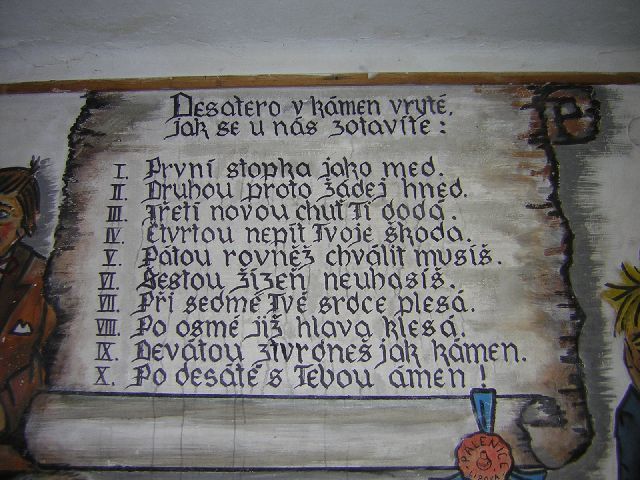 Desatero v kámen vryté,
jak se u nás zotavíte :
I. První stopka jako med.
II. Druhou proto žádej hned.
III. Třetí novou chuť Ti dodá.
IV. Čtvrtou nepít Tvoje škoda.
V. Pátou rovněž chválit musíš.
VI. Šestou žízeň neuhasíš.
VII. Při sedmé Tvé srdce plesá.
VIII. Po osmé již hlava klesá.
IX. Devátou ztvrdneš jak kámen.
X. Po desáté s Tebou ámen !
PÁLENICE